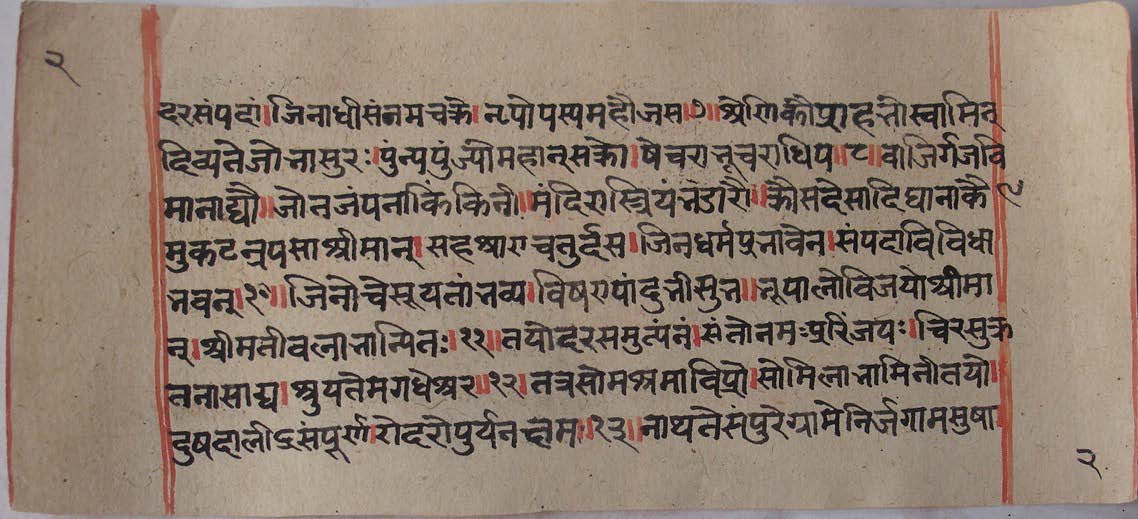 २
दरसंपदां।जिनाधीसंनमचक्रे।नृपोपस्यमहौजस।७।श्रेणिकोप्राहभोस्वामिन्
दिव्यतेजोभासुरः।पुंन्यपुंज्योमहान्सक्तो।षेचराभूचराधिप।८।वाजिर्गजवि
मानाद्यौ।जोनजंपनाकिंकिनी।मंदिरास्त्रियंभडारौ।क्रौसदेसादिघानाकै९
मुकटन्रपसाश्रीमान्।सहश्राराचतुर्द्दस।जिनधर्मप्रभावेन।संपदाविविधा
भवन्।१०।जिनोवेसूयतांभव्य।विषरापांदुभीसुत।भूपालोविजयोश्रीमा
न्।श्रीमतीवलभानान्पितः।११।तयोदरसमुत्पंनं।संतोनमःपुरिंजयः।चिरसुक्र
तनासाद्य।श्रुयतेमगधेश्रर।१२।तत्रसोमश्रमाविप्रो।सोमिलानामिनीतयो।
दुषदालीऽसंपूर्ण।रोदरोपुर्यनक्षम।१३।नाथतेसपुरेग्रामेनिर्जगामसुषा
२